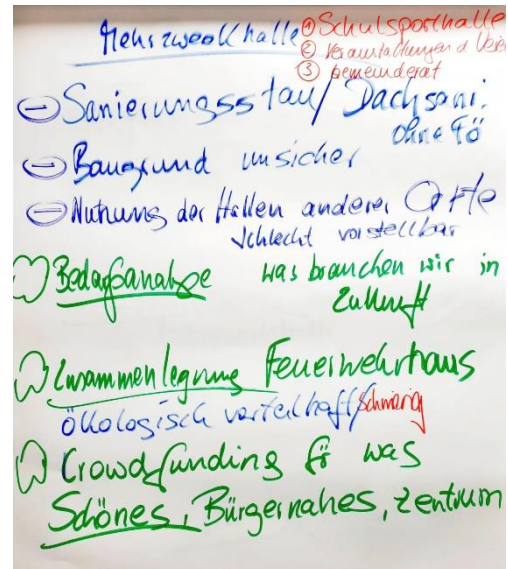 Mehrzweckhalle ① Schulsporthalle
② Veranstaltungen d
③ Gemeinderat
⊖ Sanierungsstau / Dachsani.
ohne Fö
⊖ Baugrund unsicher
⊖ Nutzung der Hallen anderer Orte
schlecht vorstellbar
Bedarfsanalyse was brauchen wir in
Zukunft
Zusammenlegung Feuerwehrhaus
ökologisch vorteilhaft / schwierig
Crowdfunding für was
Schönes, Bürgernahes, Zentrum